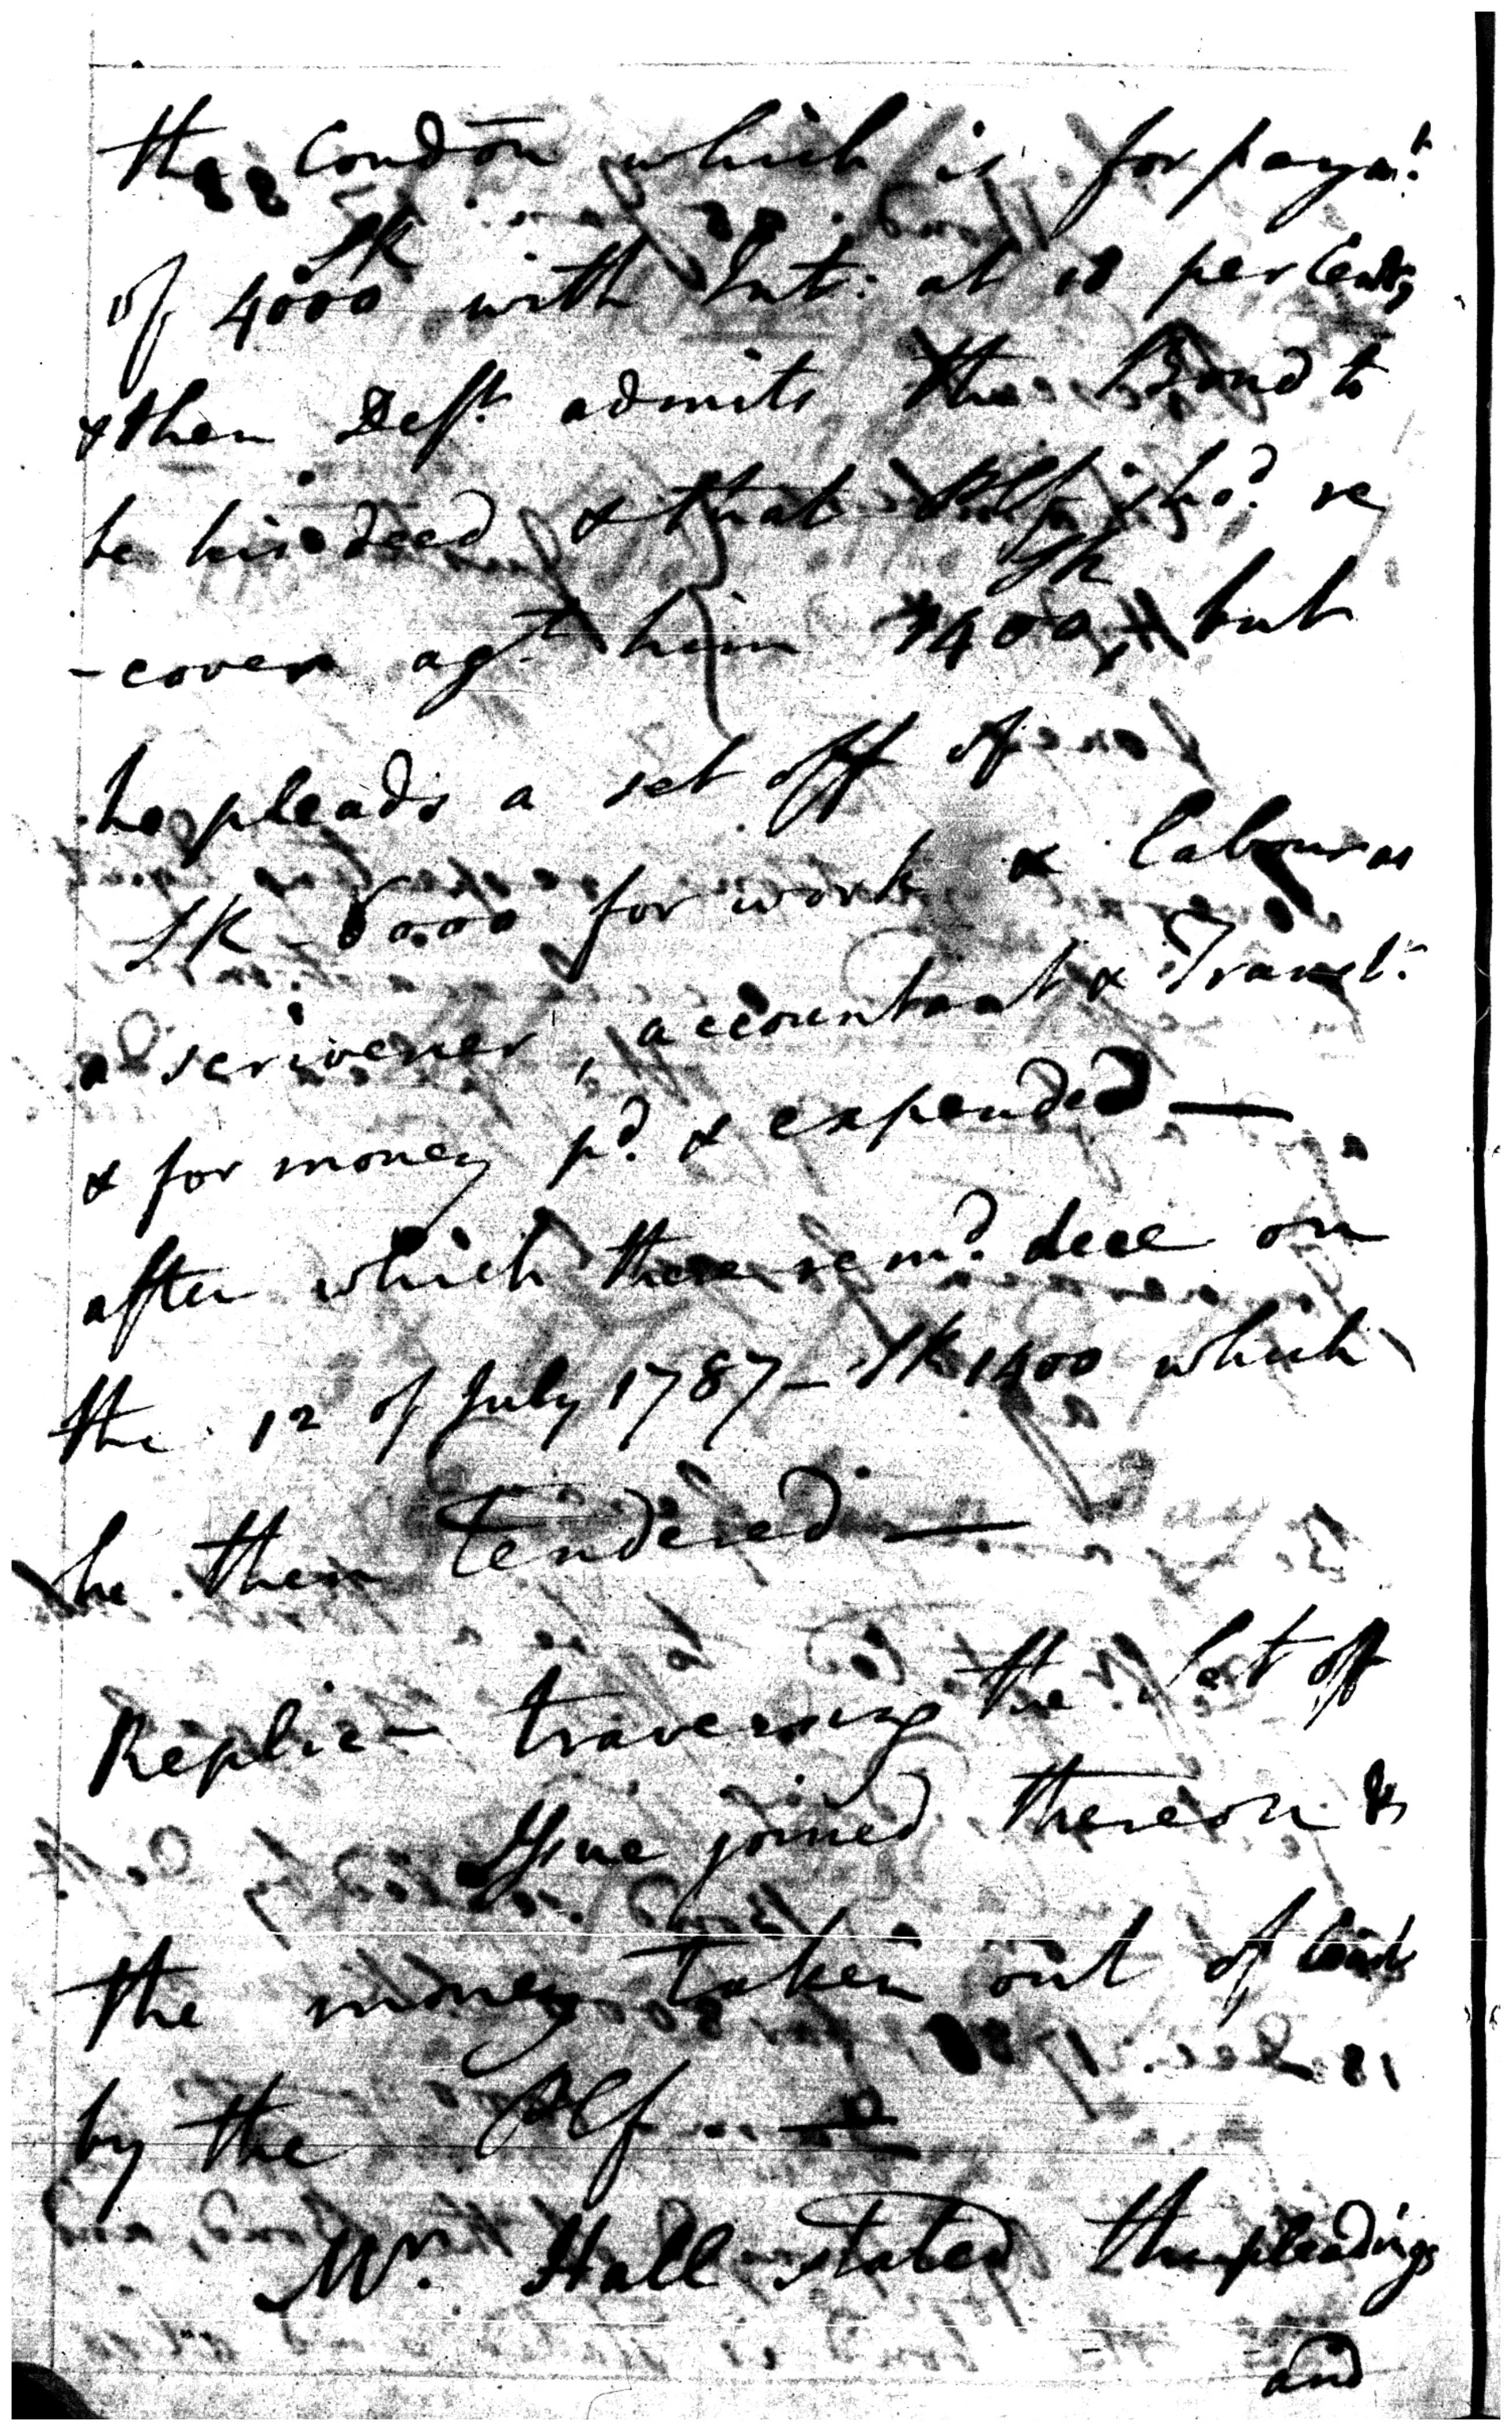 the Condōn which is for paymt.
SR
of 4000 with Int: at 10 per Cent,
& then Deft. admits the Bond to
be his deed & that Plf. shod. re
SR
-cover agt. him 1400, but
he pleads a set off of
SR 6000 for work & labour as
a scrivener, accountant & Transl:
& for money pd. & expended —
after which there remd. due on
the 12 of July 1787 – SR 1400 which
he then Tendered —
Replic– traversing the set off
Issue joined thereon &
the money taken out of Court
by the Plf —
Mr. Hall stated the pleadings
and